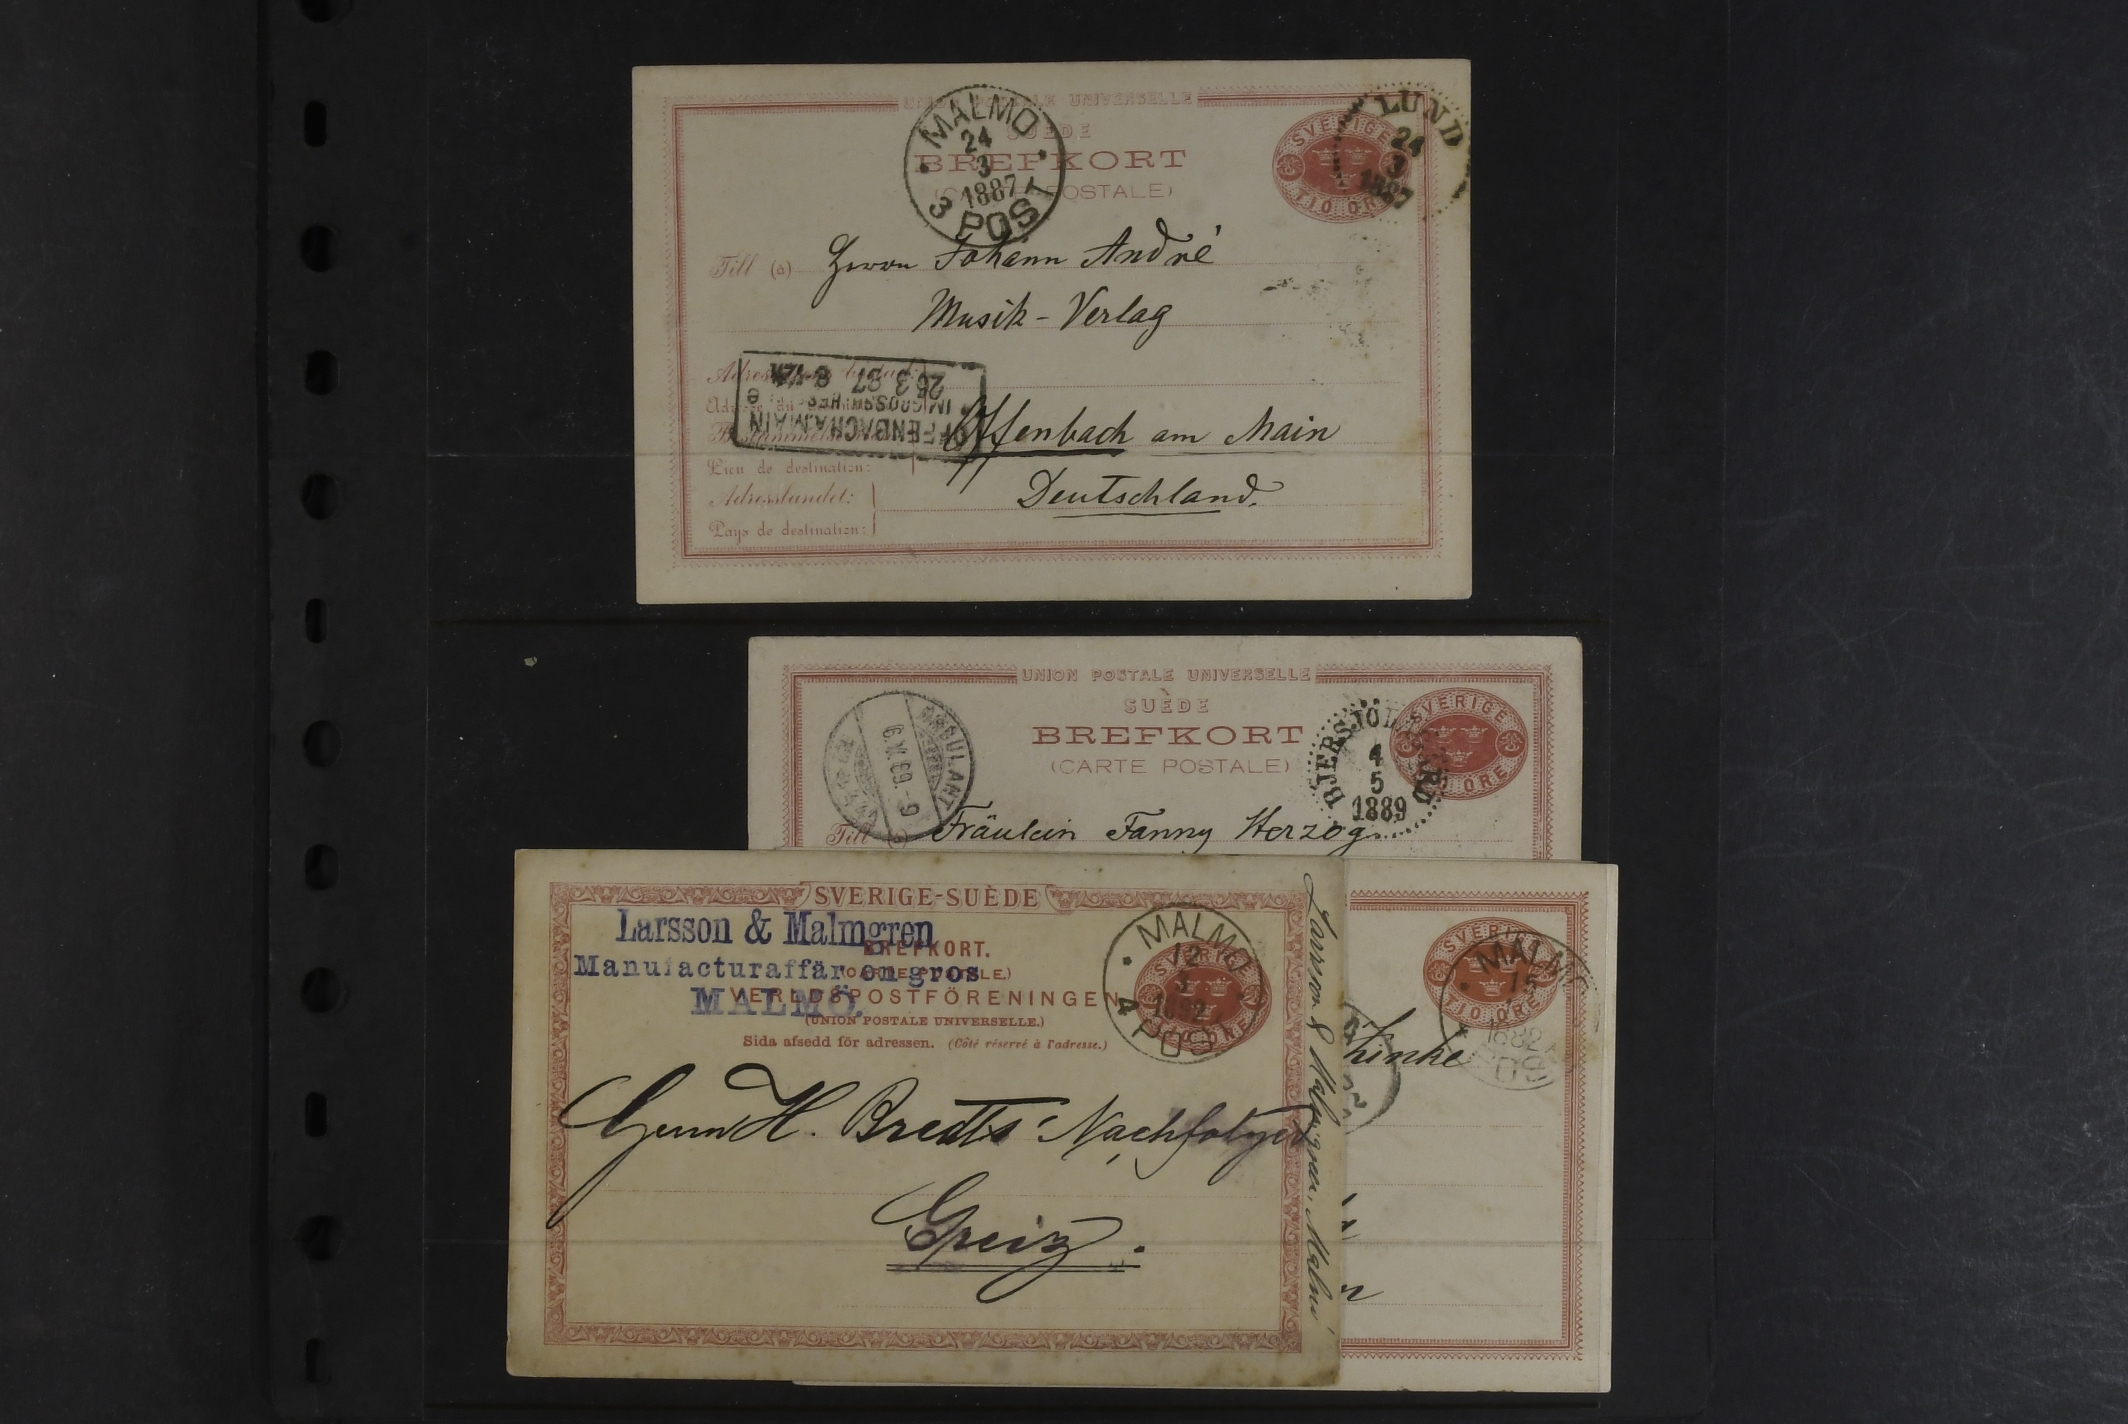 UNION POSTALE UNIVERSELLE
SUÈDE
BREFKORT
(CARTE POSTALE)
MALMÖ
24
3
1887
3 POST
SVERIGE
TIO ÖRE
LUND
24
3
1887
Till (à) Herrn Johann André
Musik-Verlag
OFFENBACH A. MAIN
26 3 87 8-
Offenbach am Main
Lieu de destination:
Adresslandet:
Deutschland.
Pays de destination:
UNION POSTALE UNIVERSELLE
SUÈDE
BREFKORT
(CARTE POSTALE)
AMBULANT
6. V. 89.-9
BJERSJÖL
4
5
1889
SVERIGE
ÖRE
Till (à) Fräulein Fanny Herzog
SVERIGE-SUÈDE
Larsson & Malmgren
BREFKORT.
Manufacturaffär en gros
MALMÖ.
VERLDSPOSTFÖRENINGEN
(UNION POSTALE UNIVERSELLE.)
Sida afsedd för adressen. (Côté réservé à l'adresse.)
MALMÖ
12
1882
4 POST
SVERIGE
Herrn H. Bredts Nachfolger
Greiz.
Larsson & Malmgren, Malmö
SVERIGE
TIO ÖRE
MALMÖ
15
1882